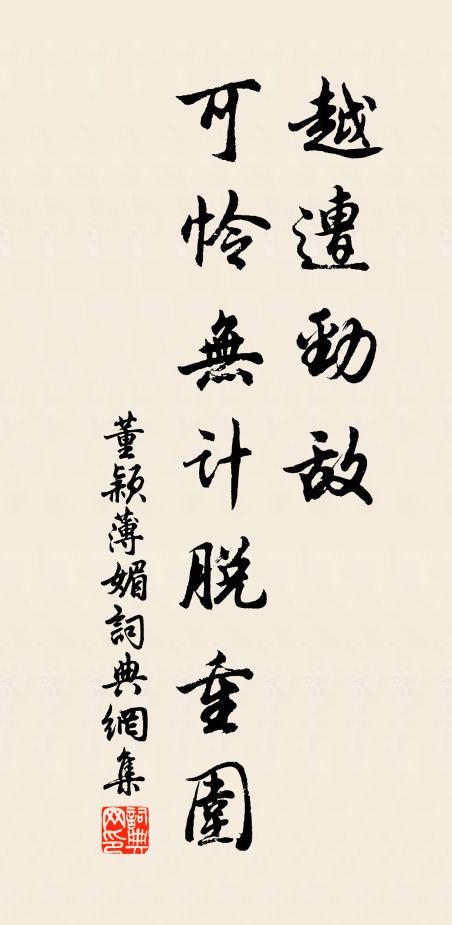 越遭勁敵
可怜無计脱重圍
董颖薄媚詞典網集
詞典网印